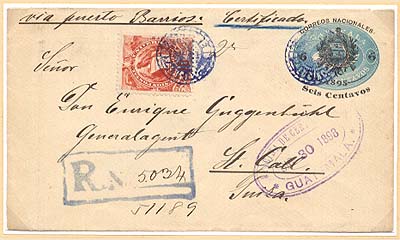 via puerto Barrios. Certificado.
CORREOS NACIONALES
6 6
1895
Seis Centavos
Señor
Don Enrique Guggenbühl
Generalagent
St. Gall.
Suiza.
R. N 5034
51189
30 1898
GUATEMALA